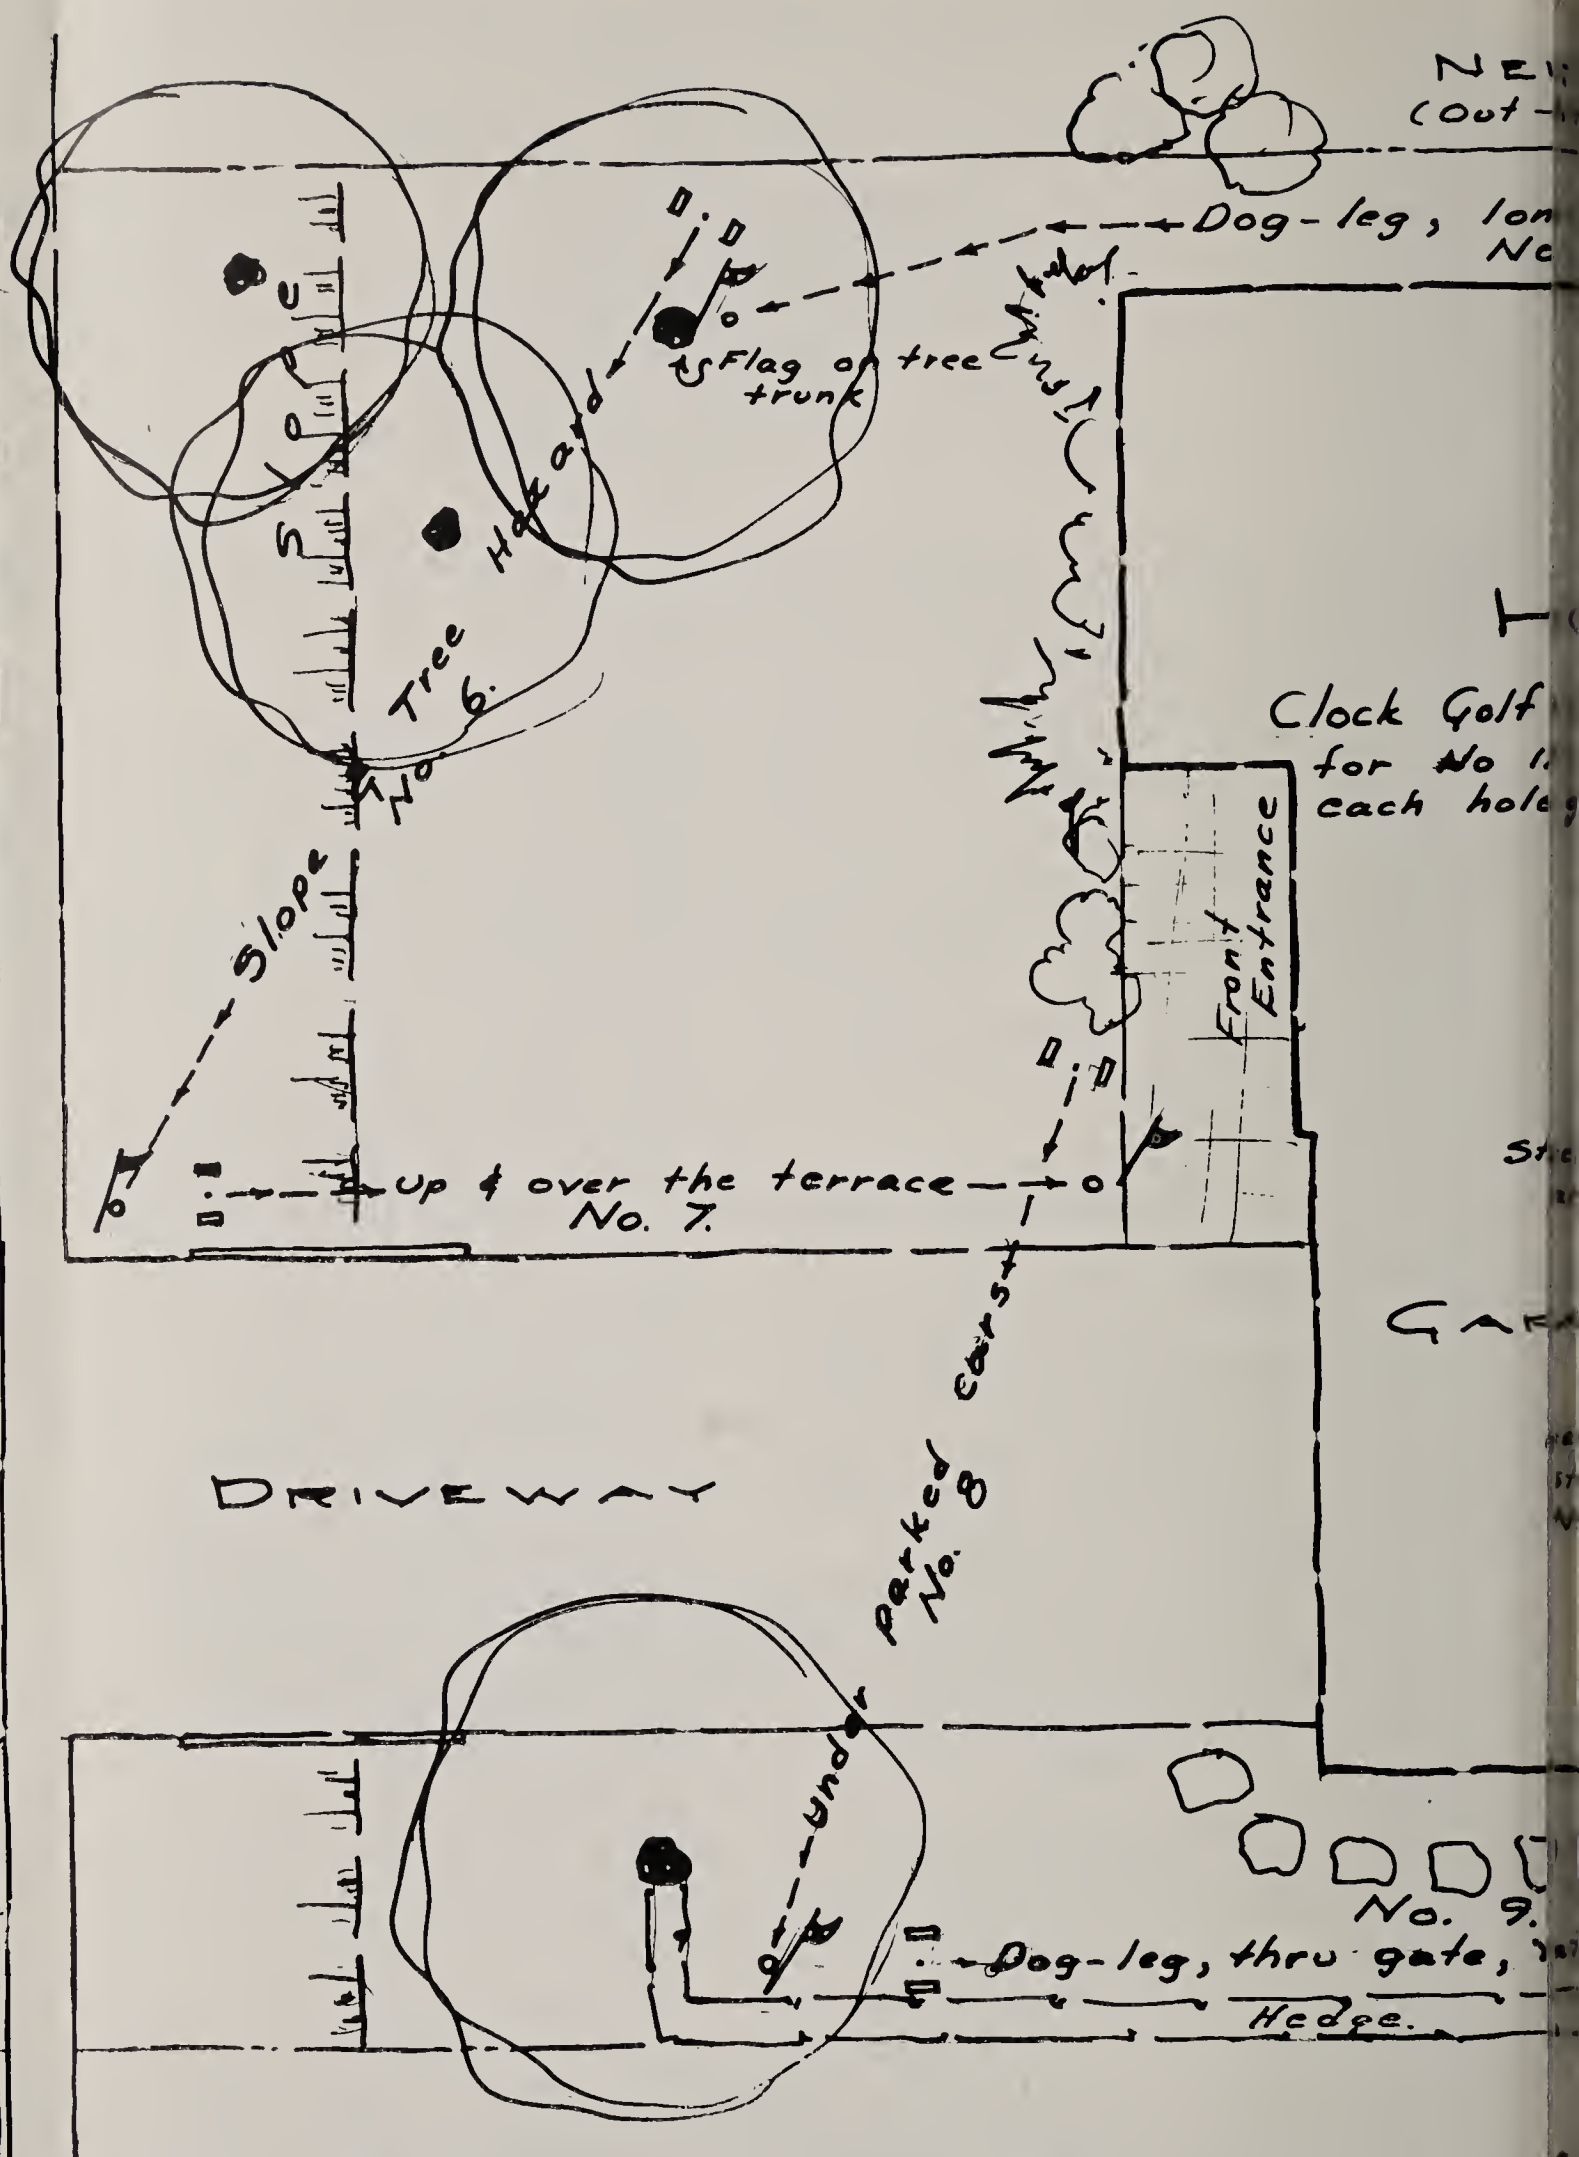 (Out-
Dog-leg,
Flag on tree
trunk
Slope
Hazard
Tree
No. 6.
Slope
Clock Golf
for No 1.
each hole
Front
Entrance
up & over the terrace
No. 7.
DRIVEWAY
Under parked cars
No. 8
No. 9.
Dog-leg, thru gate,
Hedge.